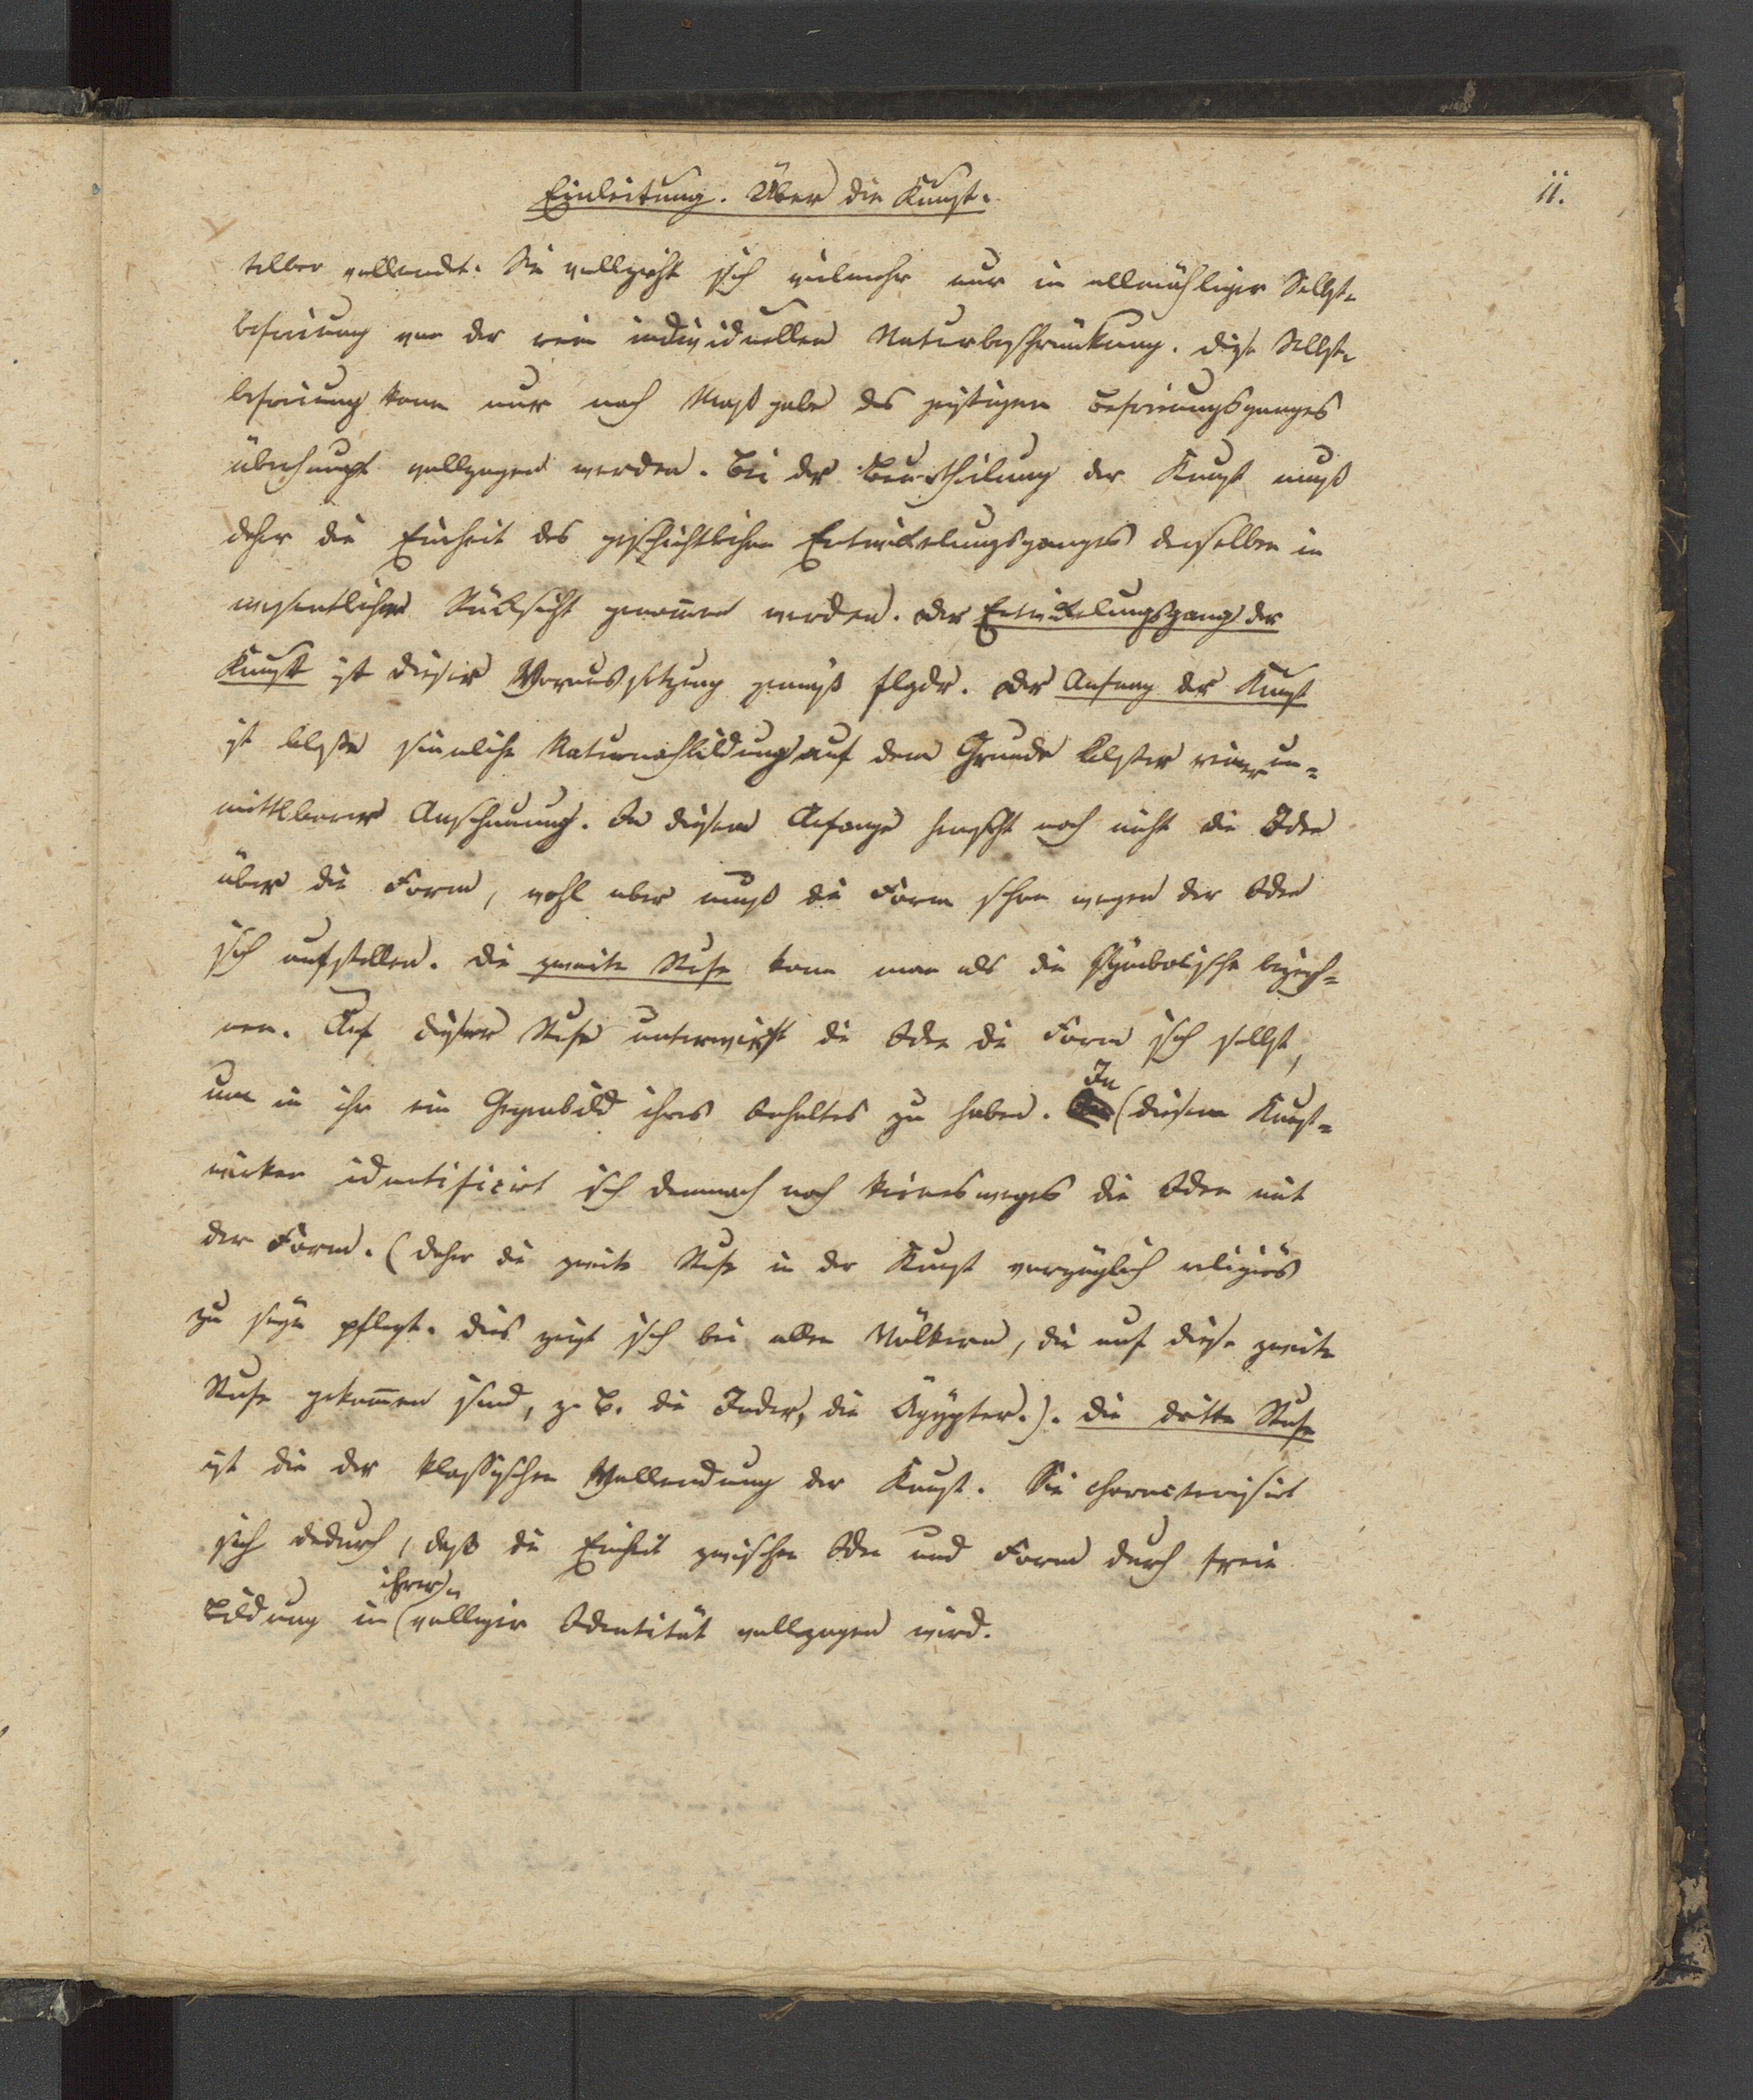 Einleitung. Über die Kunst.
11.
selber vollendet. Sie vollzieht sich vielmehr nur in allmähliger Selbst-
befreiung von der rein individuellen Naturbeschränkung. Diese Selbst-
befreiung kann nur nach Maßgabe des geistigen Befreiungsganges
überhaupt vollzogen werden. Bei der Beurtheilung der Kunst muß
daher die Einheit des geschichtlichen Entwickelungsganges derselben in
wesentlicher Rücksicht genom̄en werden. Der Entwickelungsgang der
Kunst ist dieser Voraussetzung gemäß flgdr. Der Anfang der Kunst
ist bloße sinnliche Naturnachbildung auf dem Grunde bloßer reiner un=
mittelbarer Anschauung. In diesem Anfange herrscht noch nicht die Idee
über die Form, wohl aber muß die Form schon wegen der Idee
sich aufstellen. Die zweite Stufe kann man als die symbolische bezeich=
nen. Auf dieser Stufe unterwirft die Idee die Form sich selbst,
um in ihr ein Gegenbild ihres Inhaltes zu haben. In diesem Kunst=
wirken identificirt sich demnach noch keinesweges die Idee mit
der Form. (Daher die zweite Stufe in der Kunst vorzüglich religiös
zu seyn pflegt. Dies zeigt sich bei allen Völkern, die auf diese zweite
Stufe gekom̄en sind, z. B. die Inder, die Ägypter.). Die dritte Stufe
ist die der klassischen Vollendung der Kunst. Sie characterisirt
sich dadurch, daß die Einheit zwischen Idee und Form durch freie
Bildung in ihrer völligen Identität vollzogen wird.